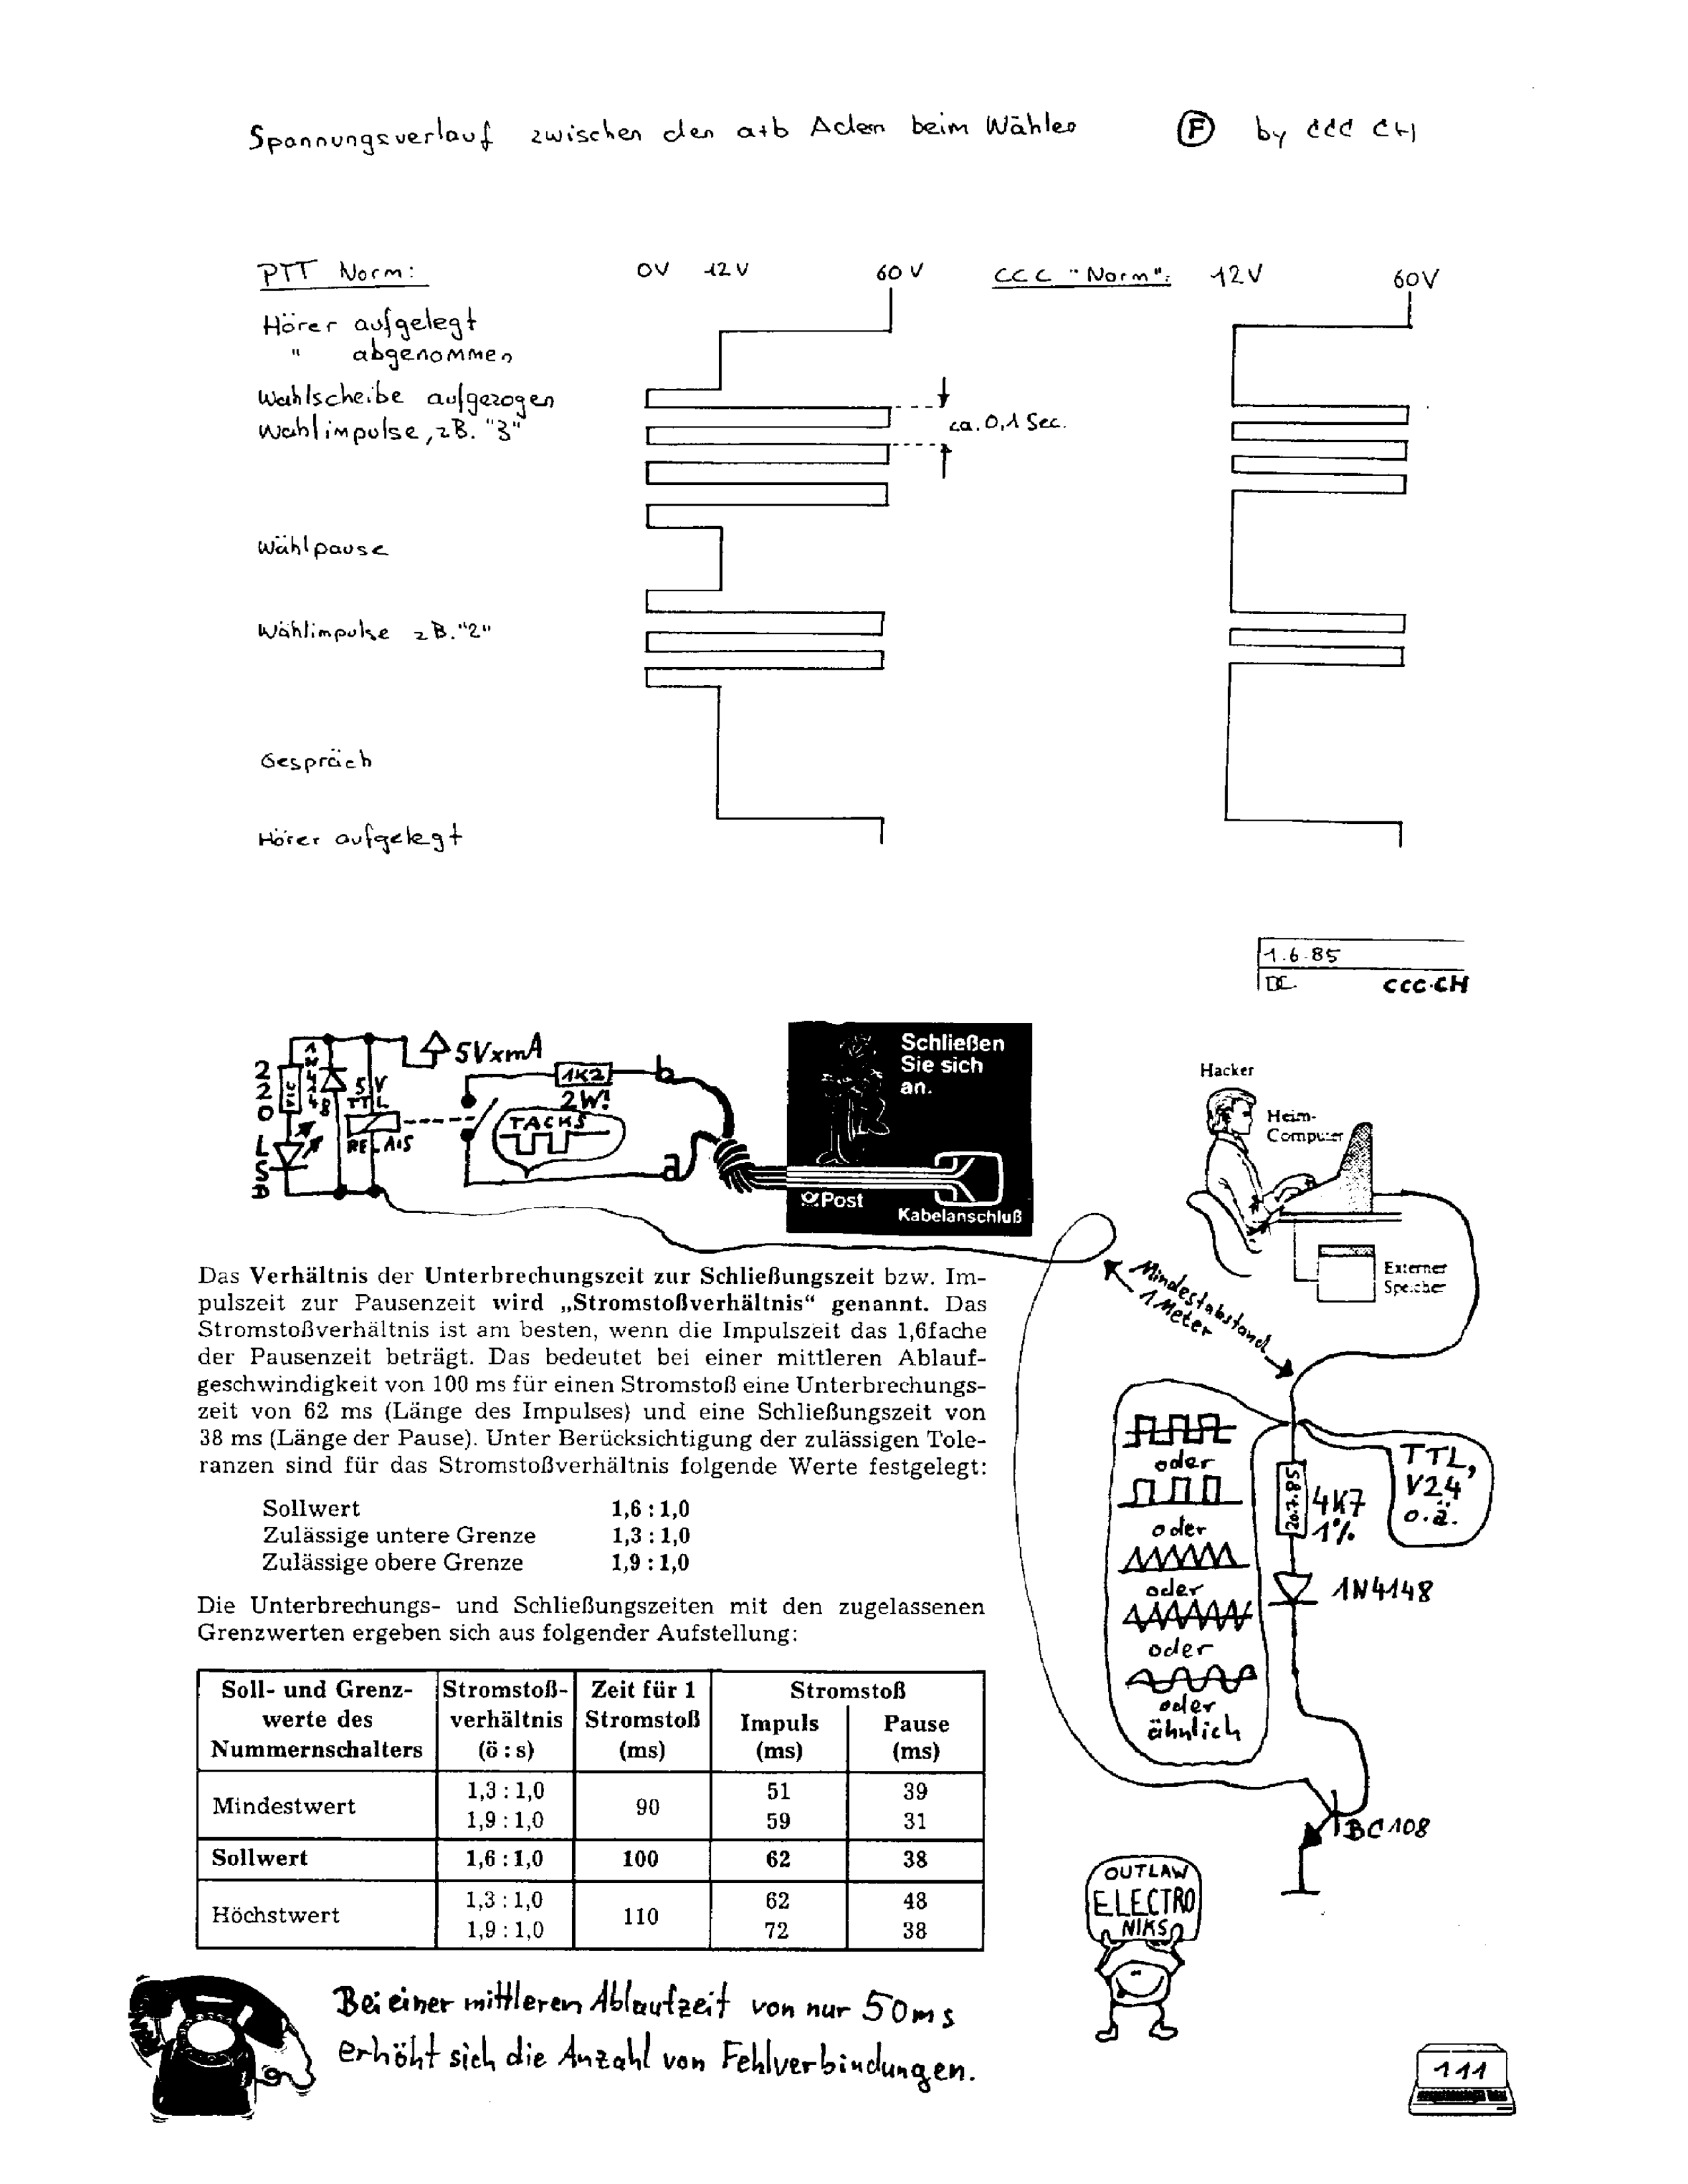 Spannungsverlauf zwischen den a+b Adern beim Wählen Ⓕ by CCC CH
PTT Norm: 0V 12V 60V CCC "Norm": 12V 60V
Hörer aufgelegt
" abgenommen
Wahlscheibe aufgezogen
Wahlimpulse, zB. "3"
ca. 0,1 Sec.
Wählpause
Wählimpulse zB. "2"
Gespräch
Hörer aufgelegt
1.6.85
CCC-CH
5VxmA
220
1N4148
5V
TTL
RELAIS
LSD
1K2
2W!
TACKS
b
a
Schließen
Sie sich
an.
Post
Kabelanschluß
Hacker
Heim-
Computer
Externer
Speicher
Mindestabstand
1 Meter
Das Verhältnis der Unterbrechungszeit zur Schließungszeit bzw. Im-
pulszeit zur Pausenzeit wird „Stromstoßverhältnis“ genannt. Das
Stromstoßverhältnis ist am besten, wenn die Impulszeit das 1,6fache
der Pausenzeit beträgt. Das bedeutet bei einer mittleren Ablauf-
geschwindigkeit von 100 ms für einen Stromstoß eine Unterbrechungs-
zeit von 62 ms (Länge des Impulses) und eine Schließungszeit von
38 ms (Länge der Pause). Unter Berücksichtigung der zulässigen Tole-
ranzen sind für das Stromstoßverhältnis folgende Werte festgelegt:
Sollwert 1,6 : 1,0
Zulässige untere Grenze 1,3 : 1,0
Zulässige obere Grenze 1,9 : 1,0
Die Unterbrechungs- und Schließungszeiten mit den zugelassenen
Grenzwerten ergeben sich aus folgender Aufstellung:
Soll- und Grenz- Stromstoß- Zeit für 1 Stromstoß
werte des verhältnis Stromstoß Impuls Pause
Nummernschalters (ö : s) (ms) (ms) (ms)
Mindestwert 1,3 : 1,0 90 51 39
1,9 : 1,0 59 31
Sollwert 1,6 : 1,0 100 62 38
Höchstwert 1,3 : 1,0 110 62 48
1,9 : 1,0 72 38
oder
oder
oder
oder
oder
ähnlich
20.7.85
4K7
1%
TTL,
V24
o.ä.
1N4148
BC108
OUTLAW
ELECTRO
NIKS
Bei einer mittleren Ablaufzeit von nur 50ms
erhöht sich die Anzahl von Fehlverbindungen.
111